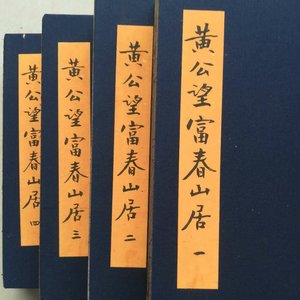 黃公望富春山居 一
黃公望富春山居 二
黃公望富春山居 三
黃公望富春山居 四